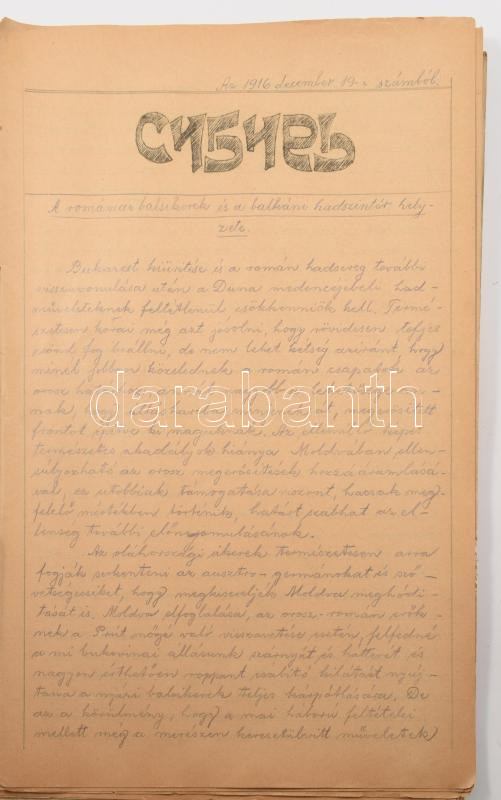 Az 1916 december 19-i számból.
Сибирь
A románai balsikerek és a balkáni hadszintér hely-
zete.
Bukarest kiürítése és a román hadsereg további
visszavonulása után a Duna medencéjebeli had-
műveleteknek feltétlenül csökkenniök kell. Termé-
szetesen korai még azt jósolni, hogy rövidesen teljes
csönd fog beállni, de nem lehet kétség aziránt, hogy
minél jobban közelednek a román csapatok az
orosz
nak,
frontot
természetes akadályok hiánya Moldvában ellen-
súlyozható az orosz megerősítések hozzááramlásá-
val, ez utóbbiak támogatása viszont, hacsak meg-
felelő mértékben történik, határt szabhat az el-
lenség további előnyomulásának.
Az oláhországi sikerek természetesen arra
fogják serkenteni az ausztro-germánokat és szö-
vetségeseiket, hogy megkiséreljék Moldva meghódí-
tását is. Moldva elfoglalása, az orosz-román erők-
nek a Prut mögé való visszavetése esetén, felfedné
a mi bukovinai állásunk szárnyát és hátterét és
nagyon érthetően roppant csábító kilátást nyúj-
tana a nyári balsikerek teljes kiegyenlítésére. De
az a körülmény, hogy a mai háború feltételei
mellett még a merészen keresztülvitt műveletek
darabanth